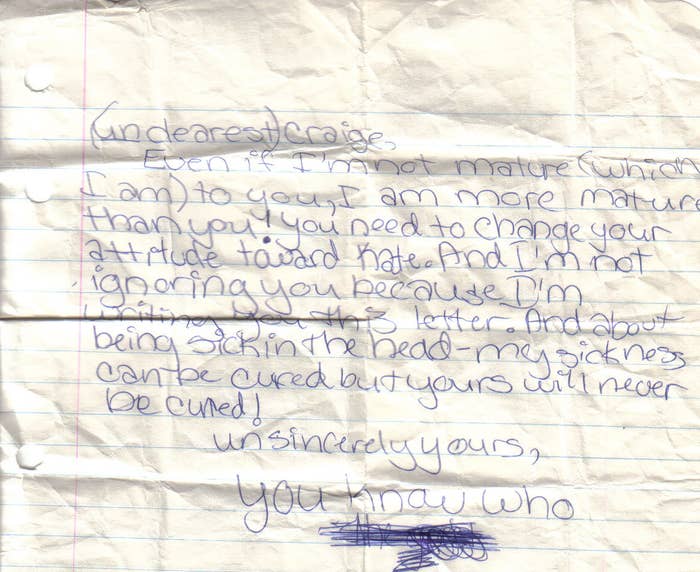 (undearest) Craige,
Even if I'm not mature (which
I am) to you, I am more mature
than you! you need to change your
attitude toward Kate. And I'm not
ignoring you because I'm
writing you this letter. And about
being sick in the head - my sickness
can be cured but yours will never
be cured!
unsincerely yours,
you know who